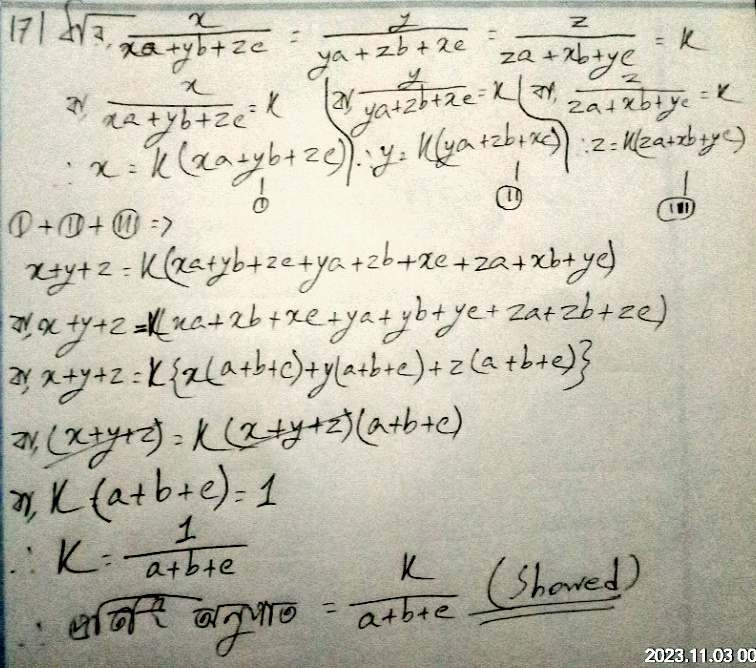 17| ধরি, x/(xa+yb+zc) = y/(ya+zb+xc) = z/(za+xb+yc) = K
বা, x/(xa+yb+zc) = K | বা, y/(ya+zb+xc) = K | বা, z/(za+xb+yc) = K
∴ x = K(xa+yb+zc) | ∴ y = K(ya+zb+xc) | ∴ z = K(za+xb+yc)
(I) (II) (III)
(I) + (II) + (III) =>
x+y+z = K(xa+yb+zc+ya+zb+xc+za+xb+yc)
বা, x+y+z = K(xa+xb+xc+ya+yb+yc+za+zb+zc)
বা, x+y+z = K{x(a+b+c)+y(a+b+c)+z(a+b+c)}
বা, (x+y+z) = K(x+y+z)(a+b+c)
বা, K(a+b+c) = 1
∴ K = 1/(a+b+c)
∴ প্রতিটি অনুপাত = K/(a+b+c) (Showed)
2023.11.03 00